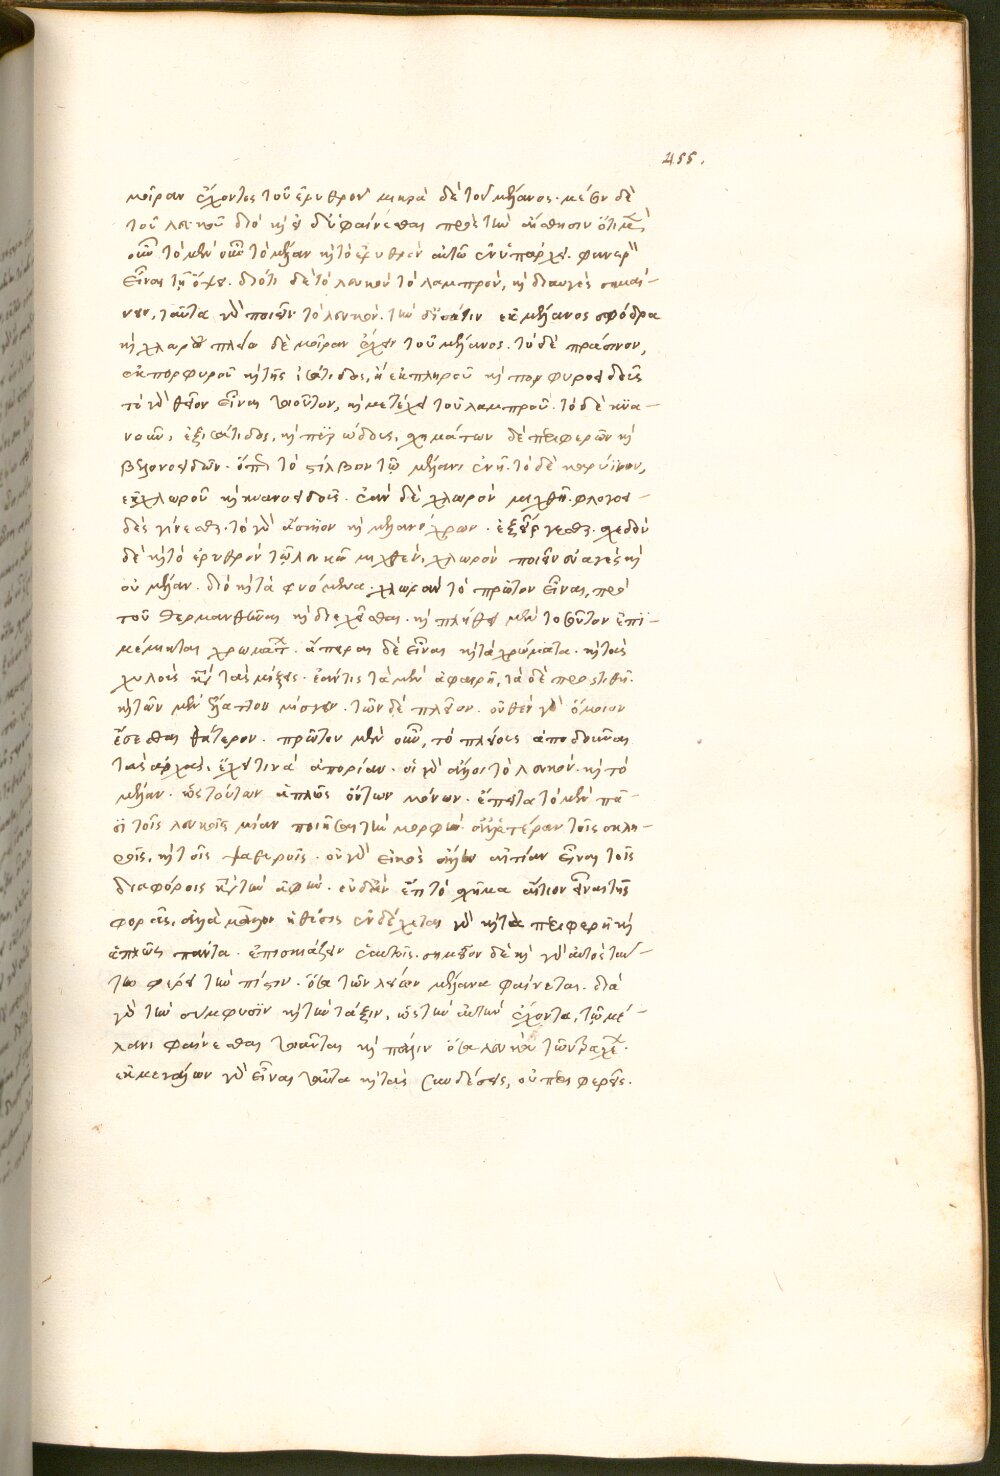 455.
μοῖραν ἔχοντος τοῦ ἐρυθροῦ μικρὰ δὲ τοῦ μέλανος. μέσην δὲ
τοῦ λευκοῦ διὸ καὶ ἡδὺ φαίνεσθαι πρὸς τὴν αἴσθησιν ὅτι μὲν
οὖν τὸ μὲν οὖν τὸ μέλαν καὶ τὸ ἐρυθρὸν αὐτῶ ἐνυπάρχει. φανερὸν
εἶναι τῇ ὄψει. διότι δὲ τὸ λευκὸν τὸ λαμπρὸν, καὶ διαυγὲς σημαί-
νειν, ταῦτα γὰρ ποιεῖν τὸ λευκόν. τὴν δ' ἴσατιν ἐκ μέλανος σφόδρα
καὶ χλωροῦ πλείω δὲ μοῖραν ἔχειν τοῦ μέλανος. τὸ δὲ πράσινον,
ἐκ πορφυροῦ καὶ τῆς ἰσάτιδος, ἢ ἐκ πληροῦ καὶ πορφυροειδοῦς
τὸ γὰρ θεῖον εἶναι τοιοῦτον, καὶ μετέχει τοῦ λαμπροῦ. τὸ δὲ κυα-
νοῦν, ἐξ ἰσάτιδος, καὶ πυρώδους, σχημάτων δὲ περιφερῶν καὶ
βελονοειδῶν. ὅπως τὸ στίλβον τῷ μέλανι ἐνῇ. τὸ δὲ καρύϊνον,
ἐκ χλωροῦ καὶ κυανοειδοῦς. ἐὰν δὲ χλωρὸν μιχθῇ. φλογοει-
δὲς γίνεσθαι. τὸ γὰρ ἄσκιον καὶ μελανόχρων. ἐξείργεσθαι. σχεδὸν
δὲ καὶ τὸ ἐρυθρὸν τῷ λευκῷ μιχθὲν, χλωρὸν ποιεῖν εὐαγὲς καὶ
οὐ μέλαν. διὸ καὶ τὰ φυόμενα. χλωρὰν τὸ πρῶτον εἶναι, πρὸ
τοῦ θερμανθῆναι καὶ διαχεῖσθαι. καὶ πλήθει μὲν τοσούτων ἐπι-
μέμνηται χρωμάτων. ἄπειρα δὲ εἶναι καὶ τὰ χρώματα. καὶ τοὺς
χυλοὺς κατὰ τὰς μίξεις. ἐάν τις τὰ μὲν ἀφαιρῇ, τὰ δὲ προστιθῇ.
καὶ τῶν μὲν ἔλαττον μίσγειν. τῶν δὲ πλεῖον. οὐθὲν γὰρ ὅμοιον
ἔσεσθαι θάτερον. πρῶτον μὲν οὖν, τὸ πλείους ἀποδοῦναι
τὰς ἀρχὰς, ἔχει τινὰ ἀπορίαν. οἱ γὰρ ἄλλοι τὸ λευκὸν. καὶ τὸ
μέλαν. ὡς τούτων ἁπλῶς ὄντων μόνων. ἔπειτα τὸ μὲν πᾶ-
σι τοῖς λευκοῖς μίαν ποιῆσαι τὴν μορφὴν. ἀλλ' ἑτέραν τοῖς σκλη-
ροῖς, καὶ τοῖς ψαθυροῖς. οὐ γὰρ εἰκὸς ἄλλην αἰτίαν εἶναι τοῖς
διαφόροις κατὰ τὴν ἁφὴν. οὐδ' ἂν ἔτι τὸ σχῆμα αἴτιον εἶναι τῆς
φορᾶς, ἀλλὰ μᾶλλον ἡ θέσις ἐνδέχεται γὰρ καὶ τὰ περιφερῆ καὶ
ἁπλῶς πάντα. ἐπισκιάζειν ἑαυτοῖς. σημεῖον δὲ καὶ γὰρ αὐτὸς ταύ-
την φέρει τὴν πίστιν. ὅσα τῶν λείων μέλανα φαίνεται. διὰ
γὰρ τὴν σύμφυσιν καὶ τὴν τάξιν, ὡς τὴν αὐτὴν ἔχοντα, τῷ μέ-
λανι φαίνεσθαι τοιαῦτα καὶ πάλιν ὅσα λευκὰ τῶν τραχέων.
ἐκ μεγάλων γὰρ εἶναι ταῦτα καὶ τὰς συνδέσεις, οὐ περιφερεῖς.